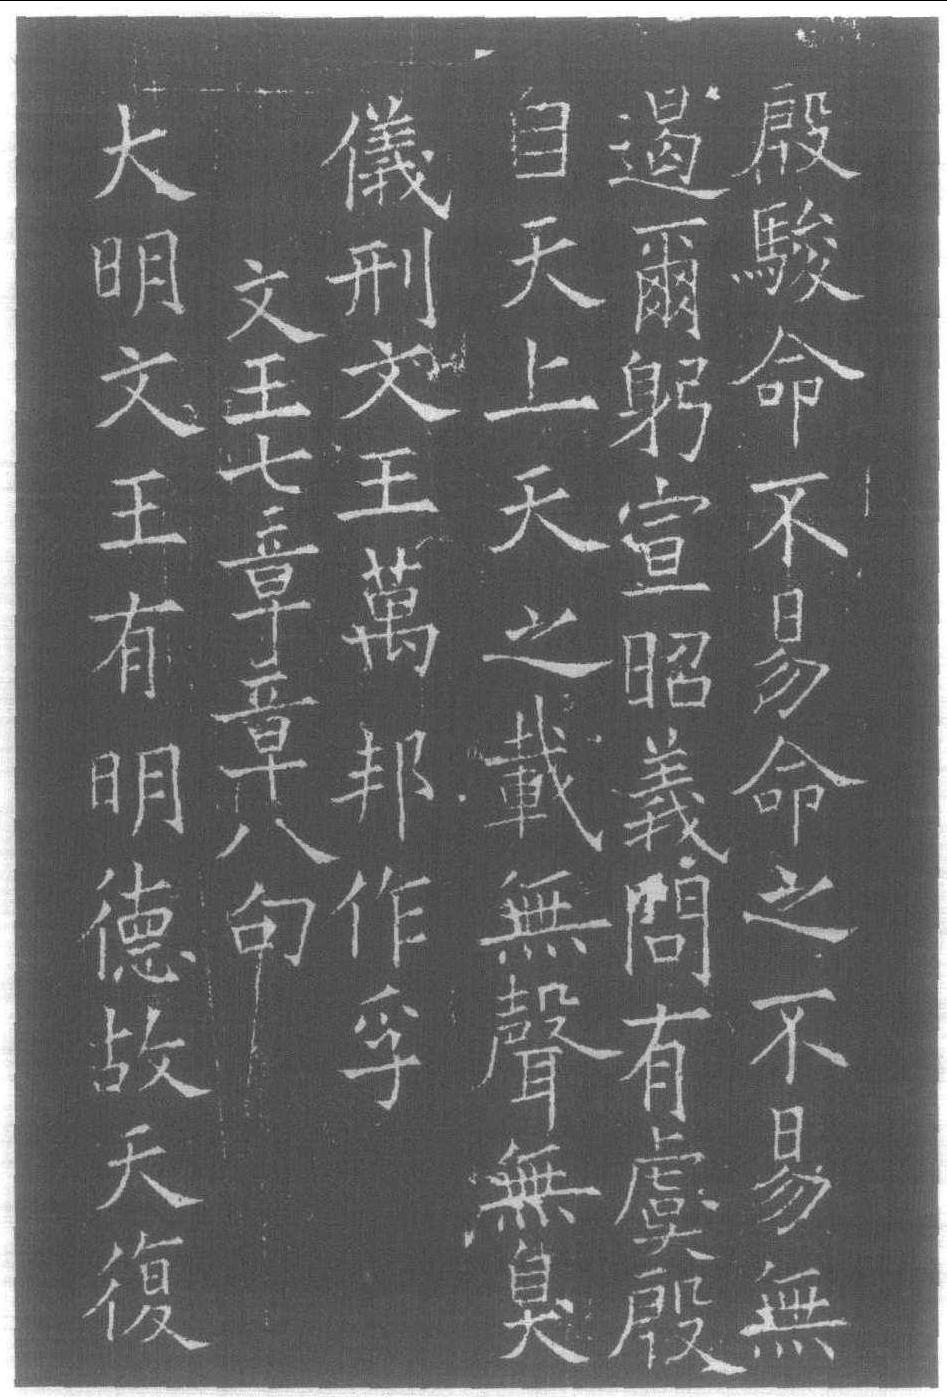 殷駿命不易命之不易無
遏爾躬宣昭義問有虞殷
自天上天之載無聲無臭
儀刑文王萬邦作孚
文王七章章八句
大明文王有明德故天復